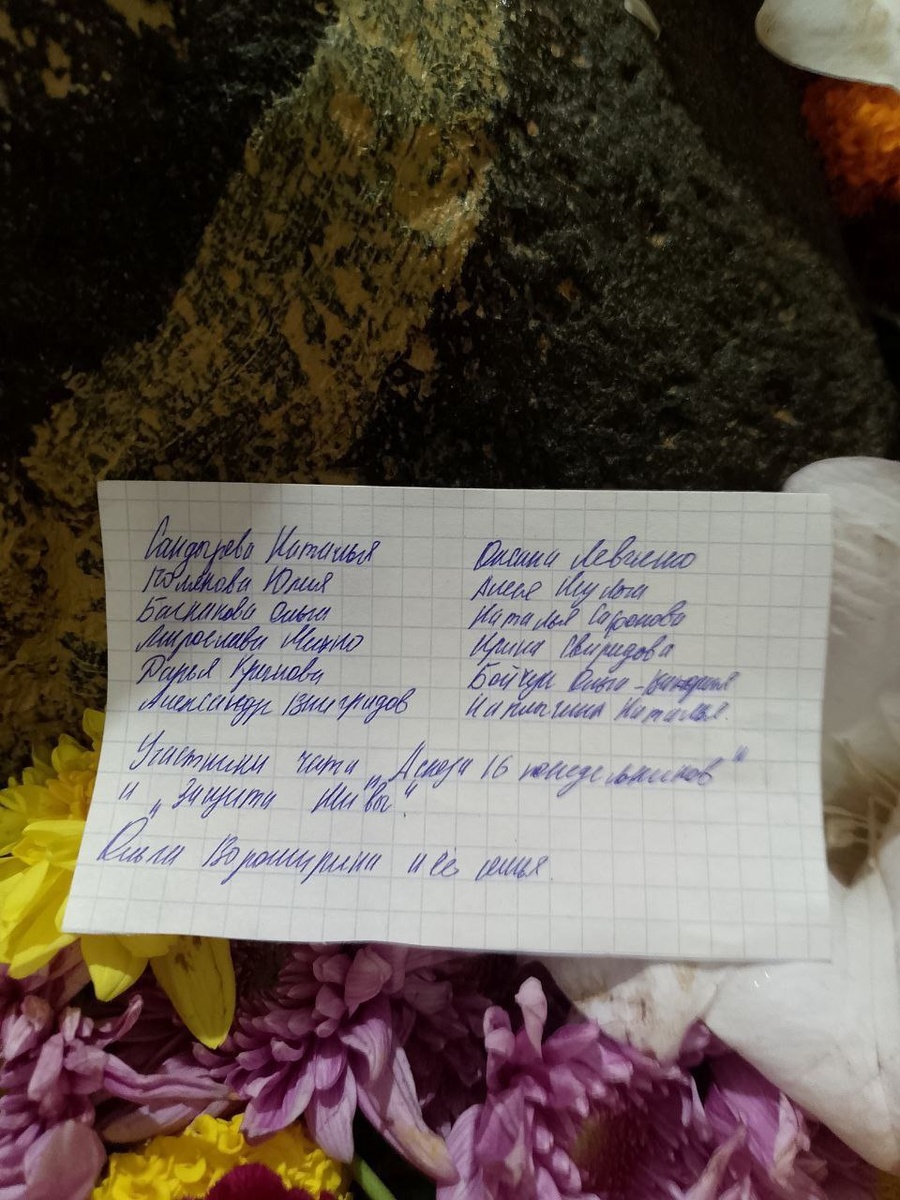 Сандырева Наталья
Полякова Юлия
Баскакова Ольга
Мирослава
Дарья Крымова
Александр Виноградов
Оксана Левченко
Алеся Шульга
Наталья Сафонова
Ирина Свиридова
Бойчук Ольга - Виктория
Наталья
Участники чата „Аскеза 16 понедельников"
и „Защита Шивы"
Ольга и её семья.